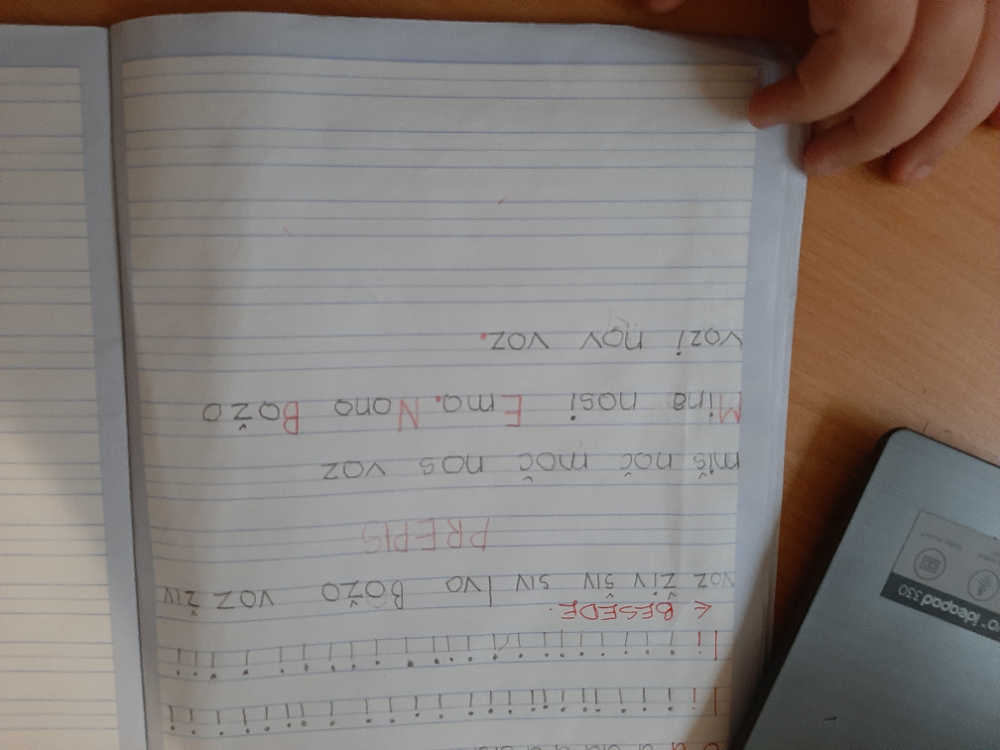 I i i i i i i i i i i i i i i i i i i i i i i i
I i i i i i i i i i i i i i i i i i i i i i i
< BESEDE.
voz živ šiv siv Ivo Božo voz živ
PREPIS
miš noč moč nos voz
Mina nosi Ema. Nono Božo
vozi nov voz.
ideapad 330